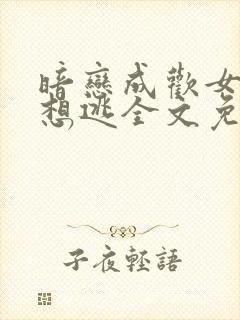 暗戀成歡女
想逃全文免
子夜輕語